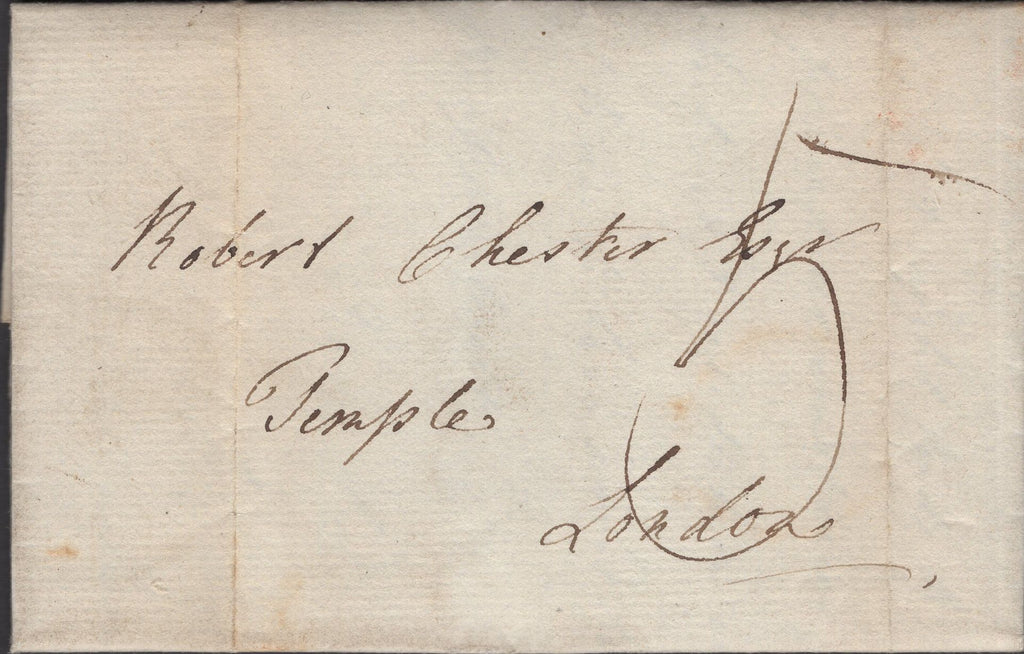 Robert Chester Esqr
Temple
London
5